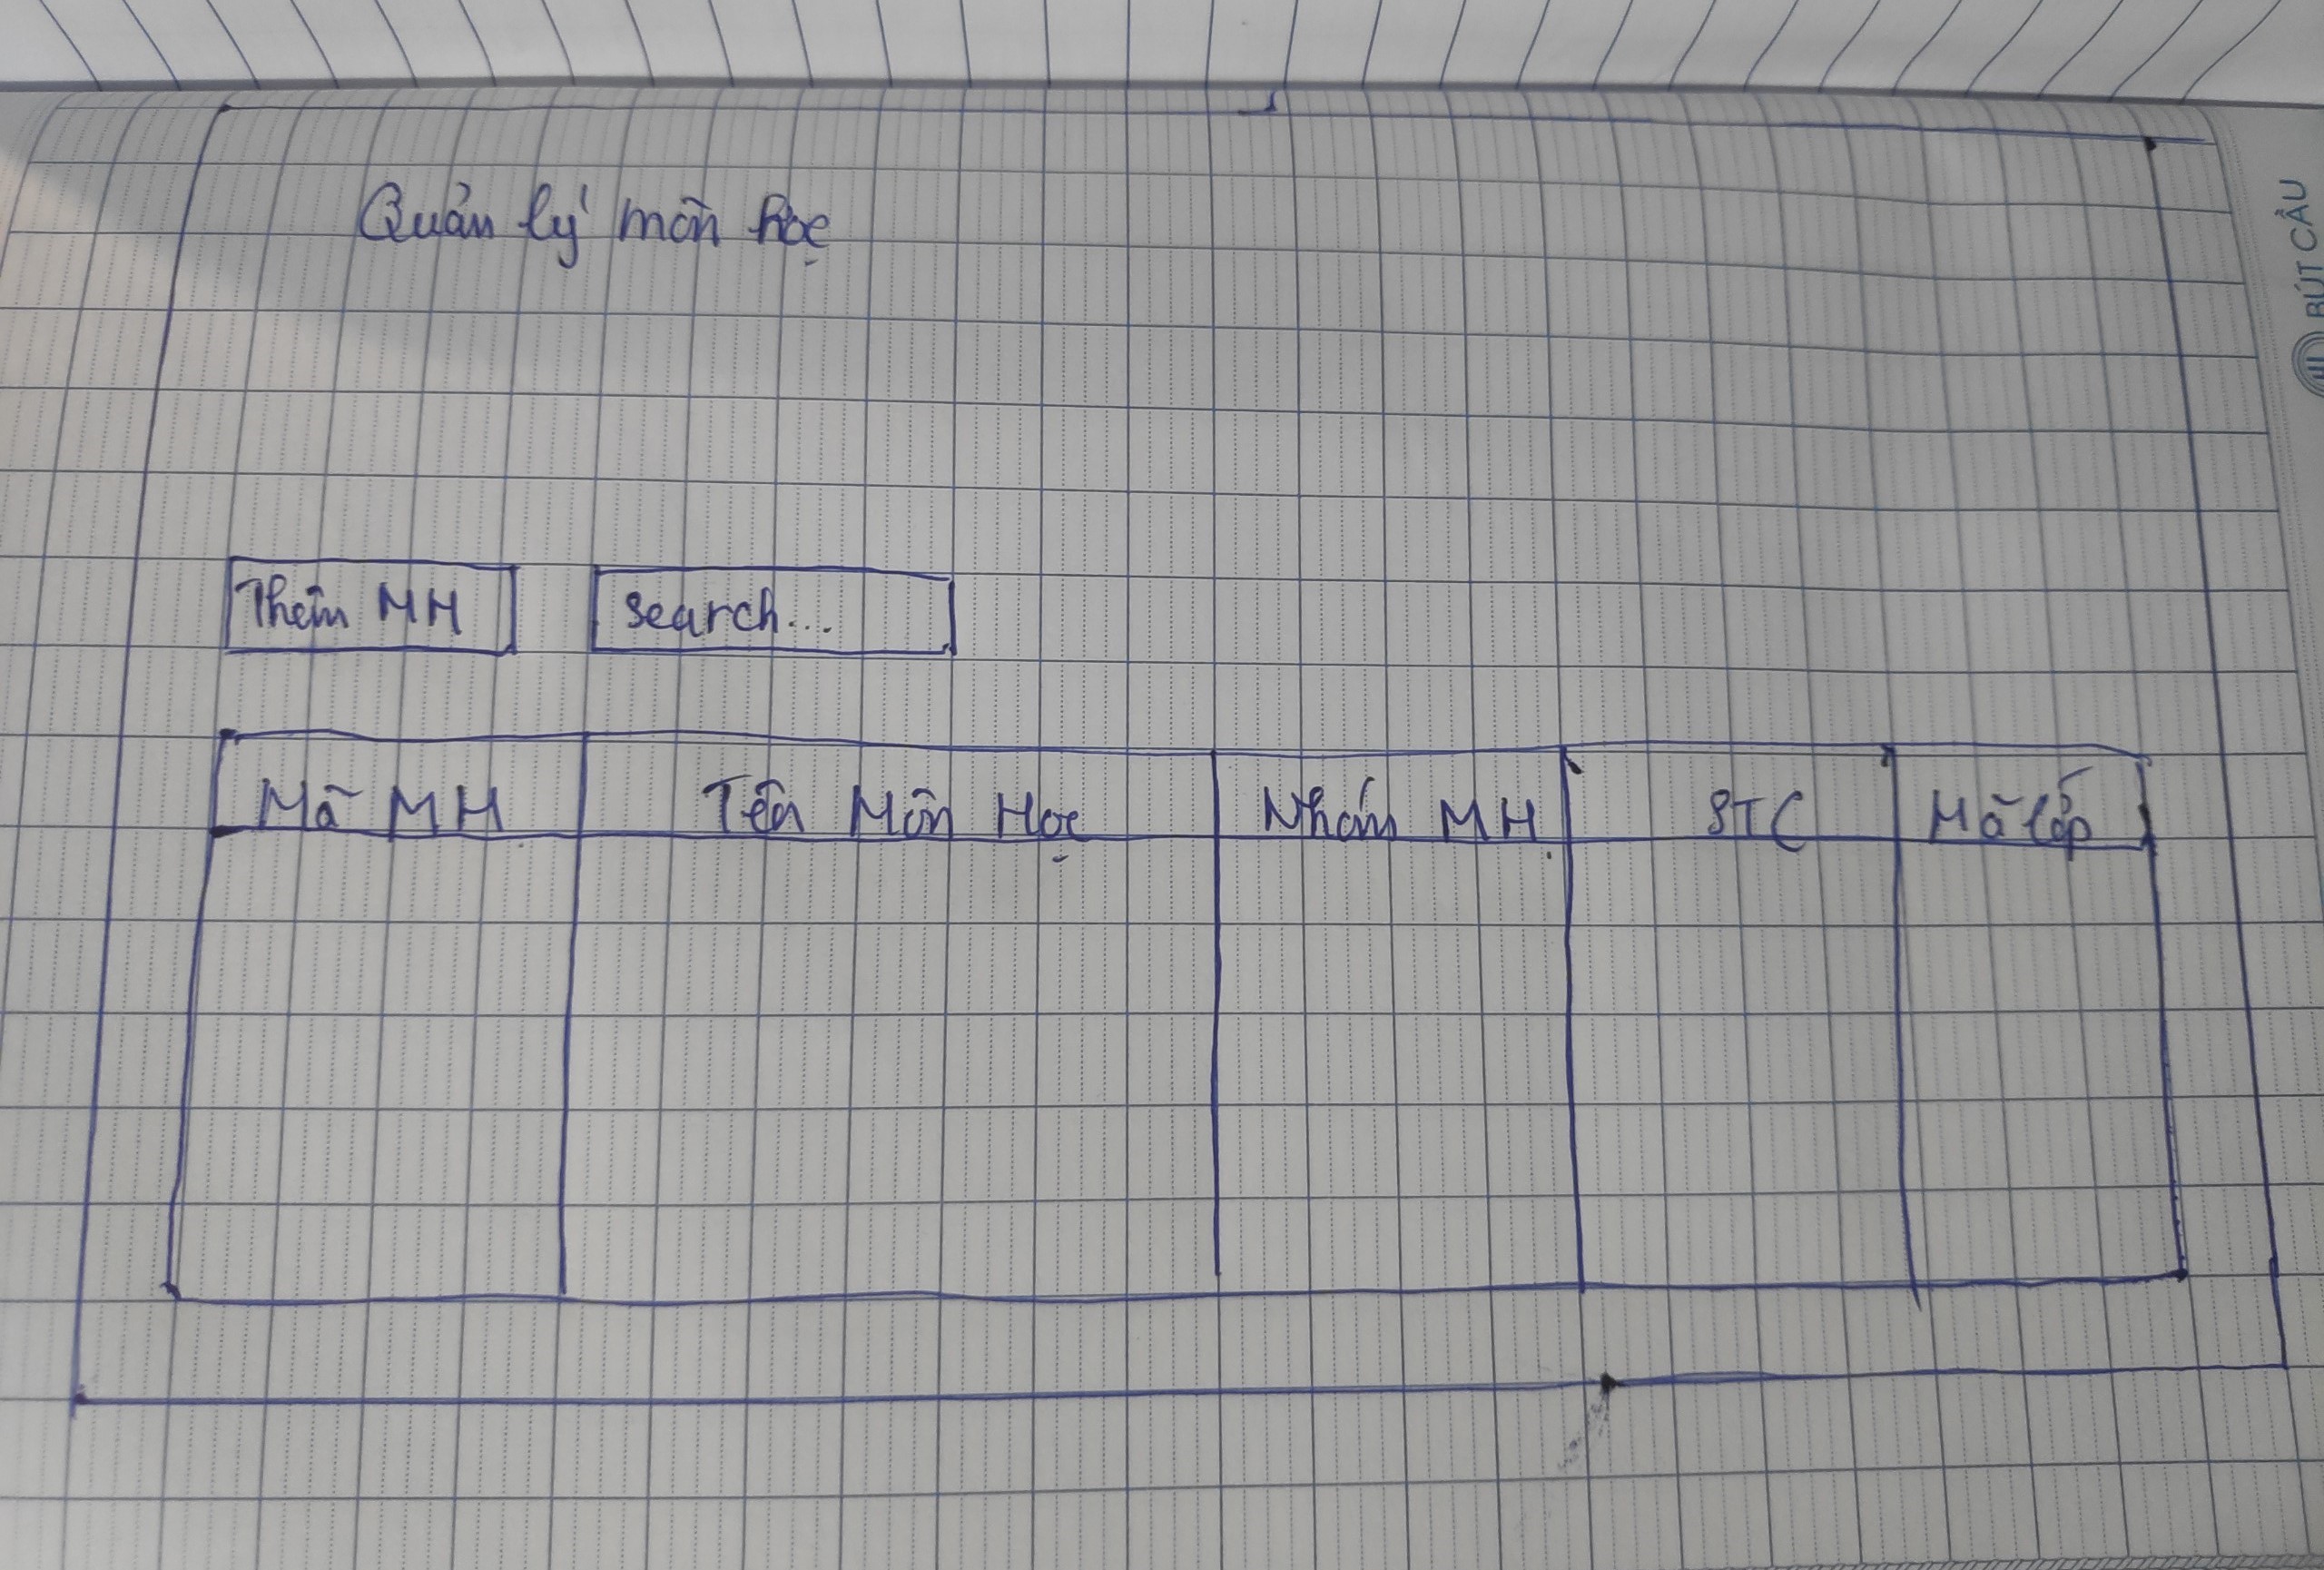 Quản lý môn học
Thêm MH
search...
Mã MH
Tên Môn Học
Nhóm MH
STC
Mã lớp
BÚT CẦU